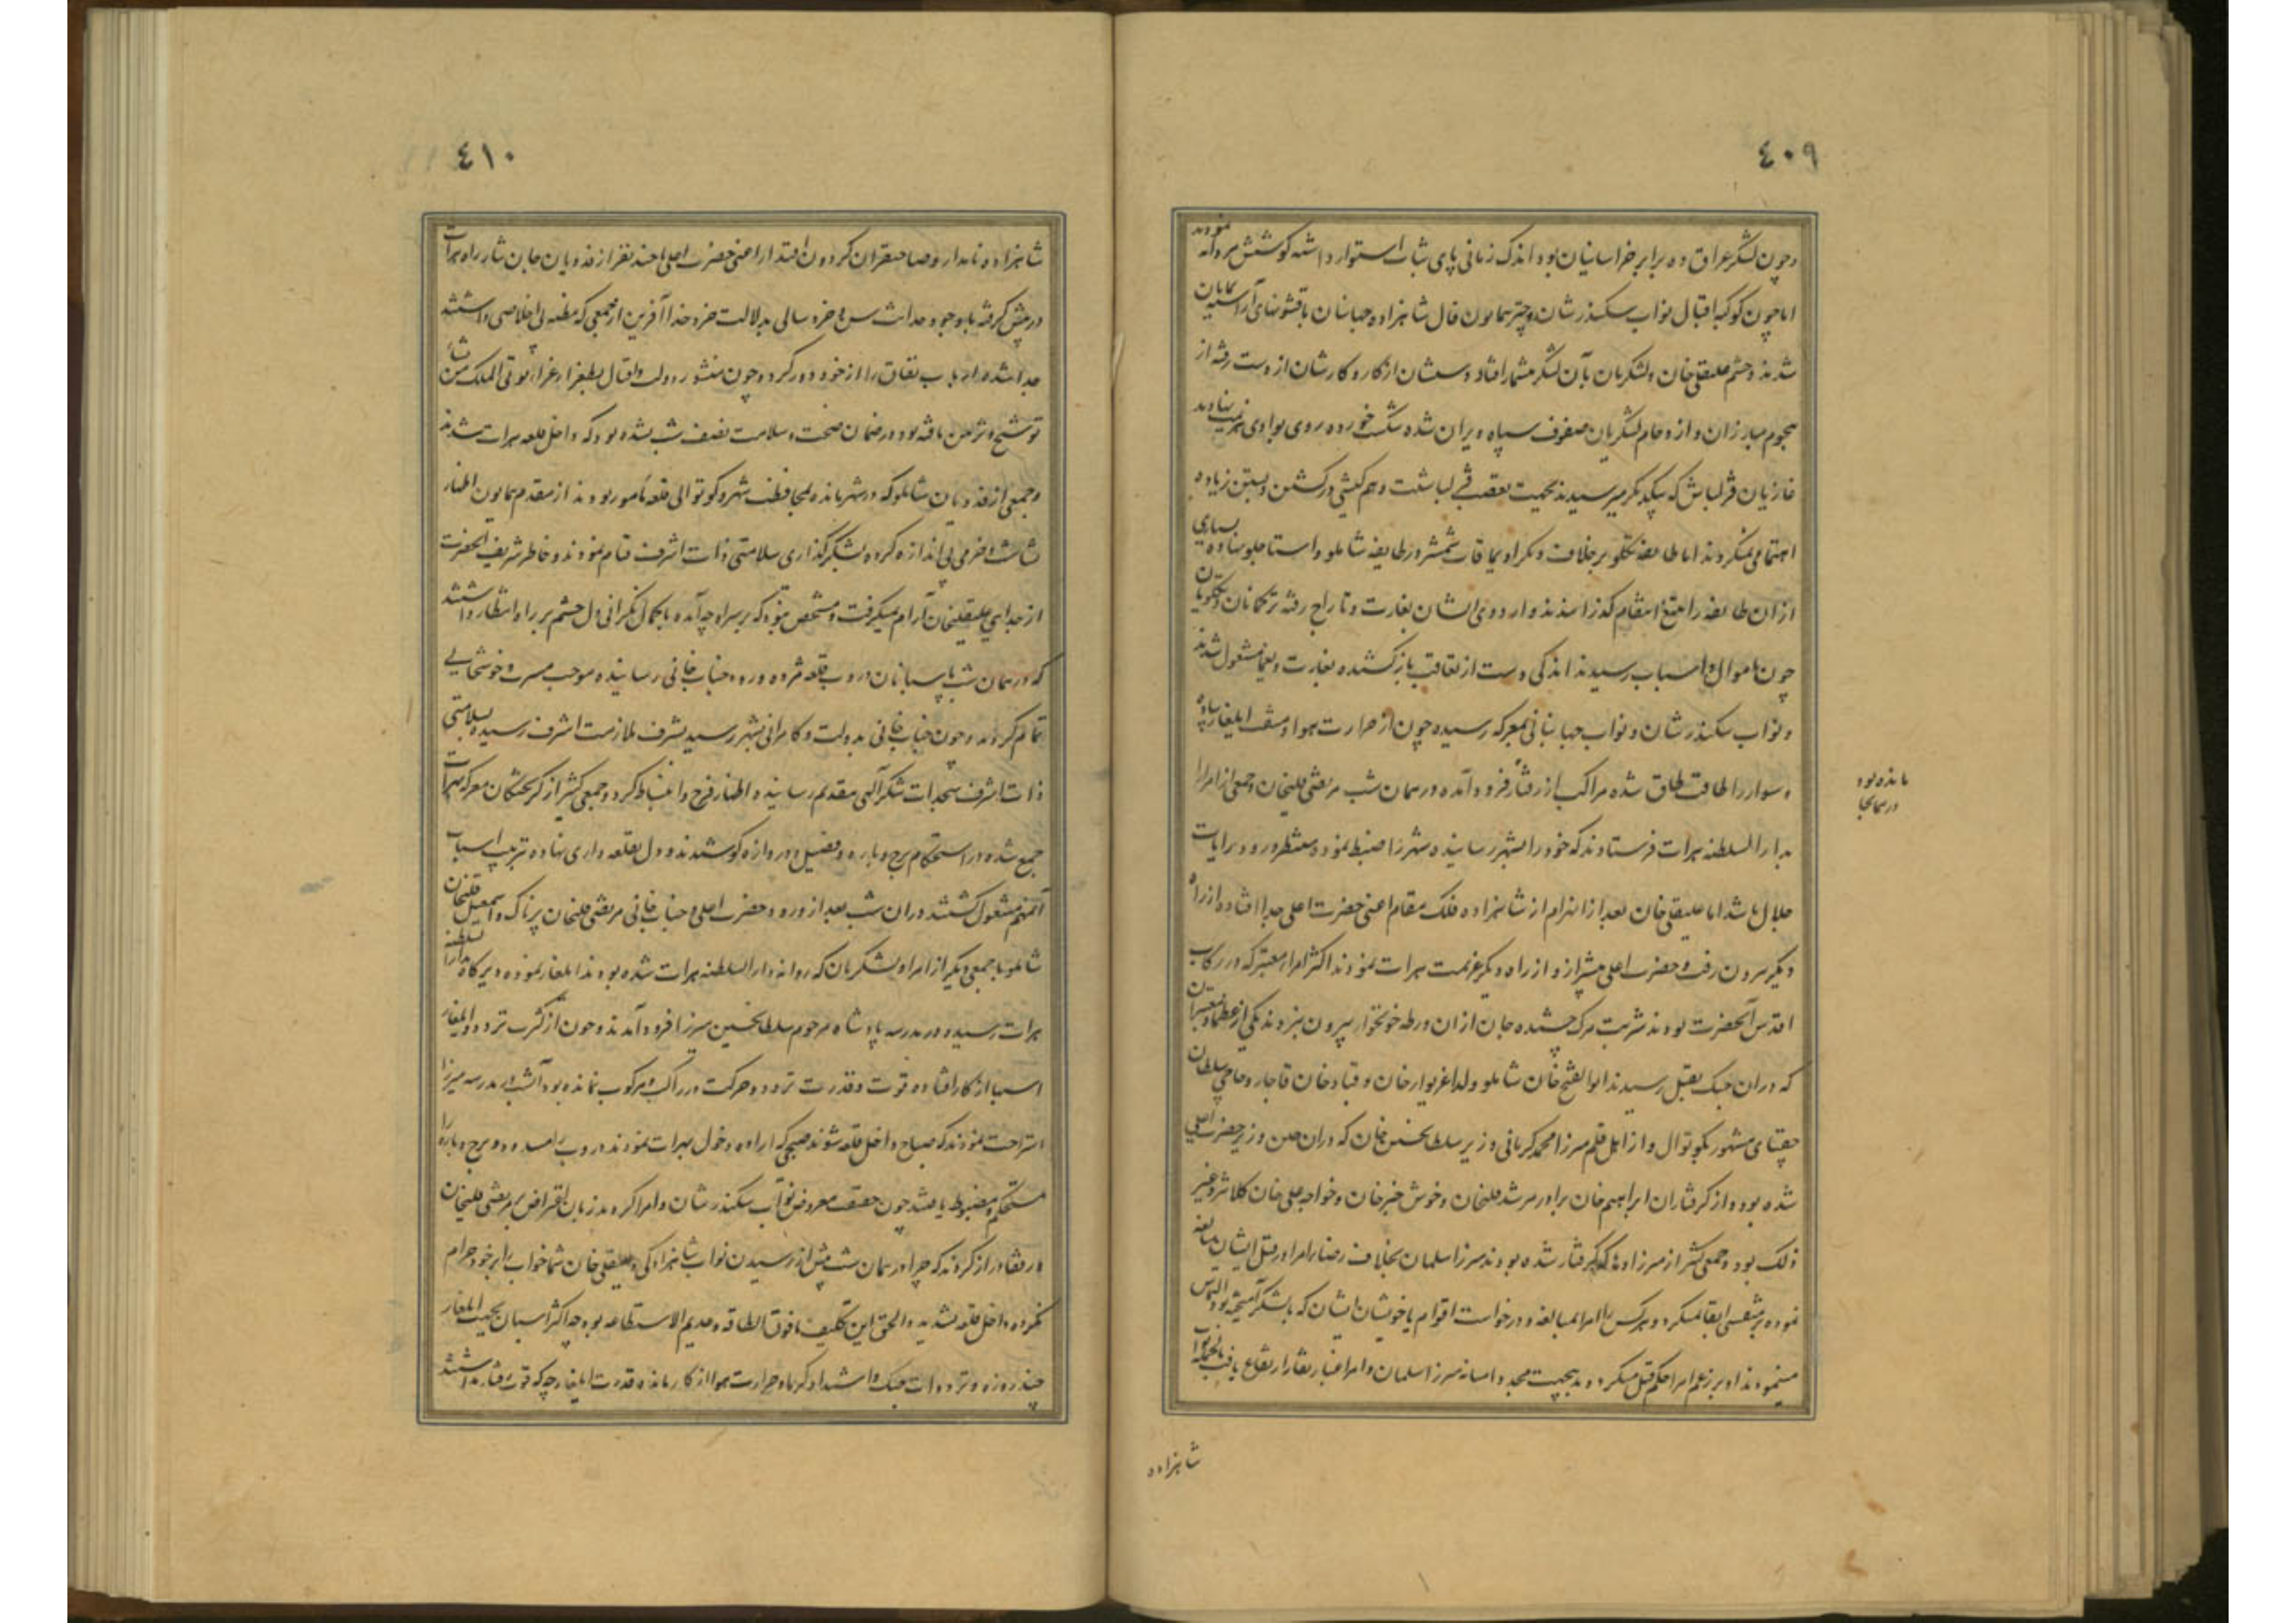 ٤٠٩
و چون لشکر عراق ده برابر خراسانیان بود اندک زمانی پای ثبات استوار داشته کوشش مردانه نمودند
اما چون کوکبه اقبال نواب سکندرشان و چتر همایون فال شاهزاده جهانبان با قشونهای آراسته نمایان
شدند و چشم علیقلی خان و لشکریان بآن لشکر بیشمار افتاد دستشان از کار و کارشان از دست رفته از
هجوم مبارزان و ازدحام لشکریان صفوف سپاه ویران شده شکست خورده روی بوادی هزیمت نهادند
غازیان قزلباش که بیکدیگر میرسیدند بحمیت تعصب قزلباشیت و هم کیشی در کشتن و بستن زیاده
اهتمامی نمیکردند اما طایفه تکلو برخلاف دیگر اویماقات شمشیر در طایفه شاملو و استاجلو نهاده بسیاری
از آن طایفه را بتیغ انتقام گذرانیدند و اردوی ایشان بغارت و تاراج رفته ترکمانان و تکلویان
چون باموال و اسباب رسیدند اندکی دست از تعاقب باز کشیده بغارت و یغما مشغول شدند
و نواب سکندرشان و نواب جهانبانی بمعرکه رسیده چون از حرارت هوا و مشقت ایلغار پیاده
و سوار را طاقت طاق شده مراکب از رفتار فرو
مانده بود
در همانجا
آمده در همان شب مرتضی قلیخان و جمعی از امرا را
بدار السلطنه هرات فرستادند که خود را بشهر رسانیده شهر را ضبط نموده منتظر ورود رایات
جلال باشد اما علیقلی خان بعد از انهزام از شاهزاده فلک مقام اعنی حضرت اعلی جدا افتاده از راه
دیگر بیرون رفت و حضرت اعلی پیشتر از و از راه دیگر عزیمت هرات نمودند اکثر امراء معتبر که در رکاب
اقدس آنحضرت بودند شربت مرگ چشیده جان از آن ورطه خونخوار بیرون نبردند یکی از عظما و معتبران
که در آن جنگ بقتل رسیدند ابوالفتح خان شاملو ولد اغزیوار خان و قباد خان قاجار و حاجی سلطان
جغتای مشهور بکوتوال و از اهل قلم میرزا محمد کرمانی وزیر سلطان حسین خان که در آن حین وزیر حضرت اعلی
شده بود و از گرفتاران ابراهیم خان برادر مرشد قلیخان و خوش خبر خان و خواجه علی خان کلانتر و غیر
ذلک بود و جمعی کثیر از میرزاده‌ها که گرفتار شده بودند میرزا سلمان بخلاف رضای امرا در قتل ایشان مبالغه
نموده بر متنفسی ابقا نمیکرد و هر کس را امرا بمبالغه و درخواست اقوام یا خویشان ایشان که بلشکر آمیخته بود التماس
مینمودند او بر رغم امرا حکم قتل میکرد و بدینجهت مجددا میانه میرزا سلمان و امرا غبار نقار ارتفاع یافت بالجمله نواب
شاهزاده
٤١٠
شاهزاده نامدار و صاحبقران گردون اقتدار اعنی حضرت اعلی با چند نفر از فدویان جان نثار راه هرات
در پیش گرفته با وجود حداثت سن و خرد سالی بدلالت خرد خدا آفرین از جمعی که مظنه بی اخلاصی داشتند
جدا شده ارباب نفاق را از خود دور کرد و چون منشور دولت و اقبال بطغرای غرای توتی الملک من تشاء
توشیح و تزیین یافته بود در ضمان صحت و سلامت نصف شب شده بود که داخل قلعه هرات شدند
و جمعی از فدویان شاملو که در شهر مانده بمحافظت شهر و کوتوالی قلعه مأمور بودند از مقدم همایون اظهار
بشاشت و خرمی بی اندازه کرده بشکرگذاری سلامتی ذات اشرف قیام نمودند و خاطر شریف آنحضرت
از جدایی علیقلیخان آرام نمیگرفت و مشخص نبود که بر سر او چه آمده با کمال نگرانی دل چشم بر راه انتظار داشتند
که در همان شب پاسبانان دروب قلعه مژده ورود جناب خانی رسانیده موجب مسرت و خوشحالی
تمام کردند و چون جناب خانی بدولت و کامرانی بشهر رسید بشرف ملازمت اشرف رسیده بسلامتی
ذات اشرف سجدات شکر آلهی بتقدیم رسانیده اظهار فرح و انبساط کرد و جمعی کثیر از گریختگان معرکه بهرات
جمع شده در استحکام برج و باره و فصیل و دروازه کوشیدند و دل بقلعه داری نهاده بترتیب اسباب
آن مهم مشغول گشتند در آن شب بعد از ورود حضرت اعلی و جناب خانی مرتضی قلیخان پرناک و اسمعیل قلیخان
شاملو با جمعی دیگر از امرا و لشکریان که روانه دار السلطنه هرات شده بودند ایلغار نموده دیرگاه بدار السلطنه
هرات رسیده در مدرسه پادشاه مرحوم سلطان حسین میرزا فرود آمدند و چون از کثرت تردد و ایلغار
اسبها از کار افتاده قوت و قدرت تردد و حرکت در راکب و مرکوب نمانده بود آنشب در مدرسه میرزا
استراحت نمودند که صباح داخل قلعه شوند صبحی که اراده دخول بهرات نمودند دروب را مسدود و برج و باره را
مستحکم و مضبوط یافتند چون حقیقت معروض نواب سکندرشان و امرا گردید زبان اعتراض بمرتضی قلیخان
و رفقا دراز کردند که چرا در همان شب پیش از رسیدن نواب شاهزادگی و علیقلی خان شما خواب را بر خود حرام
نکرده داخل قلعه نشدید و الحق این تکلیف ما فوق الطاقه و عدیم الاستطاعه بود چه اکثر اسبان بجهت ایلغار
چند روزه و ترددات جنگ و اشتداد گرما و حرارت هوا از کار مانده قدرت ایلغار چه که قوت رفتار نداشتند